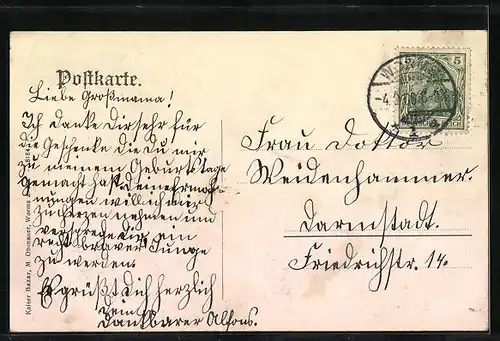 Postkarte.
Liebe Großmama!
Ich danke Dir sehr für
die Geschenke die Du mir
zu meinem Geburtstage
gemacht hast. Deine Ermah-
nungen will ich mir
zu Herzen nehmen und
verspreche Dir, ein
recht braver Junge
zu werden.
Es grüßt Dich herzlich
Dein
dankbarer Alfons.
Frau Doktor
Weidenhammer.
Darmstadt.
Friedrichstr. 14.
5 5
Kaiser Bazar, M. Obenauer, Worms